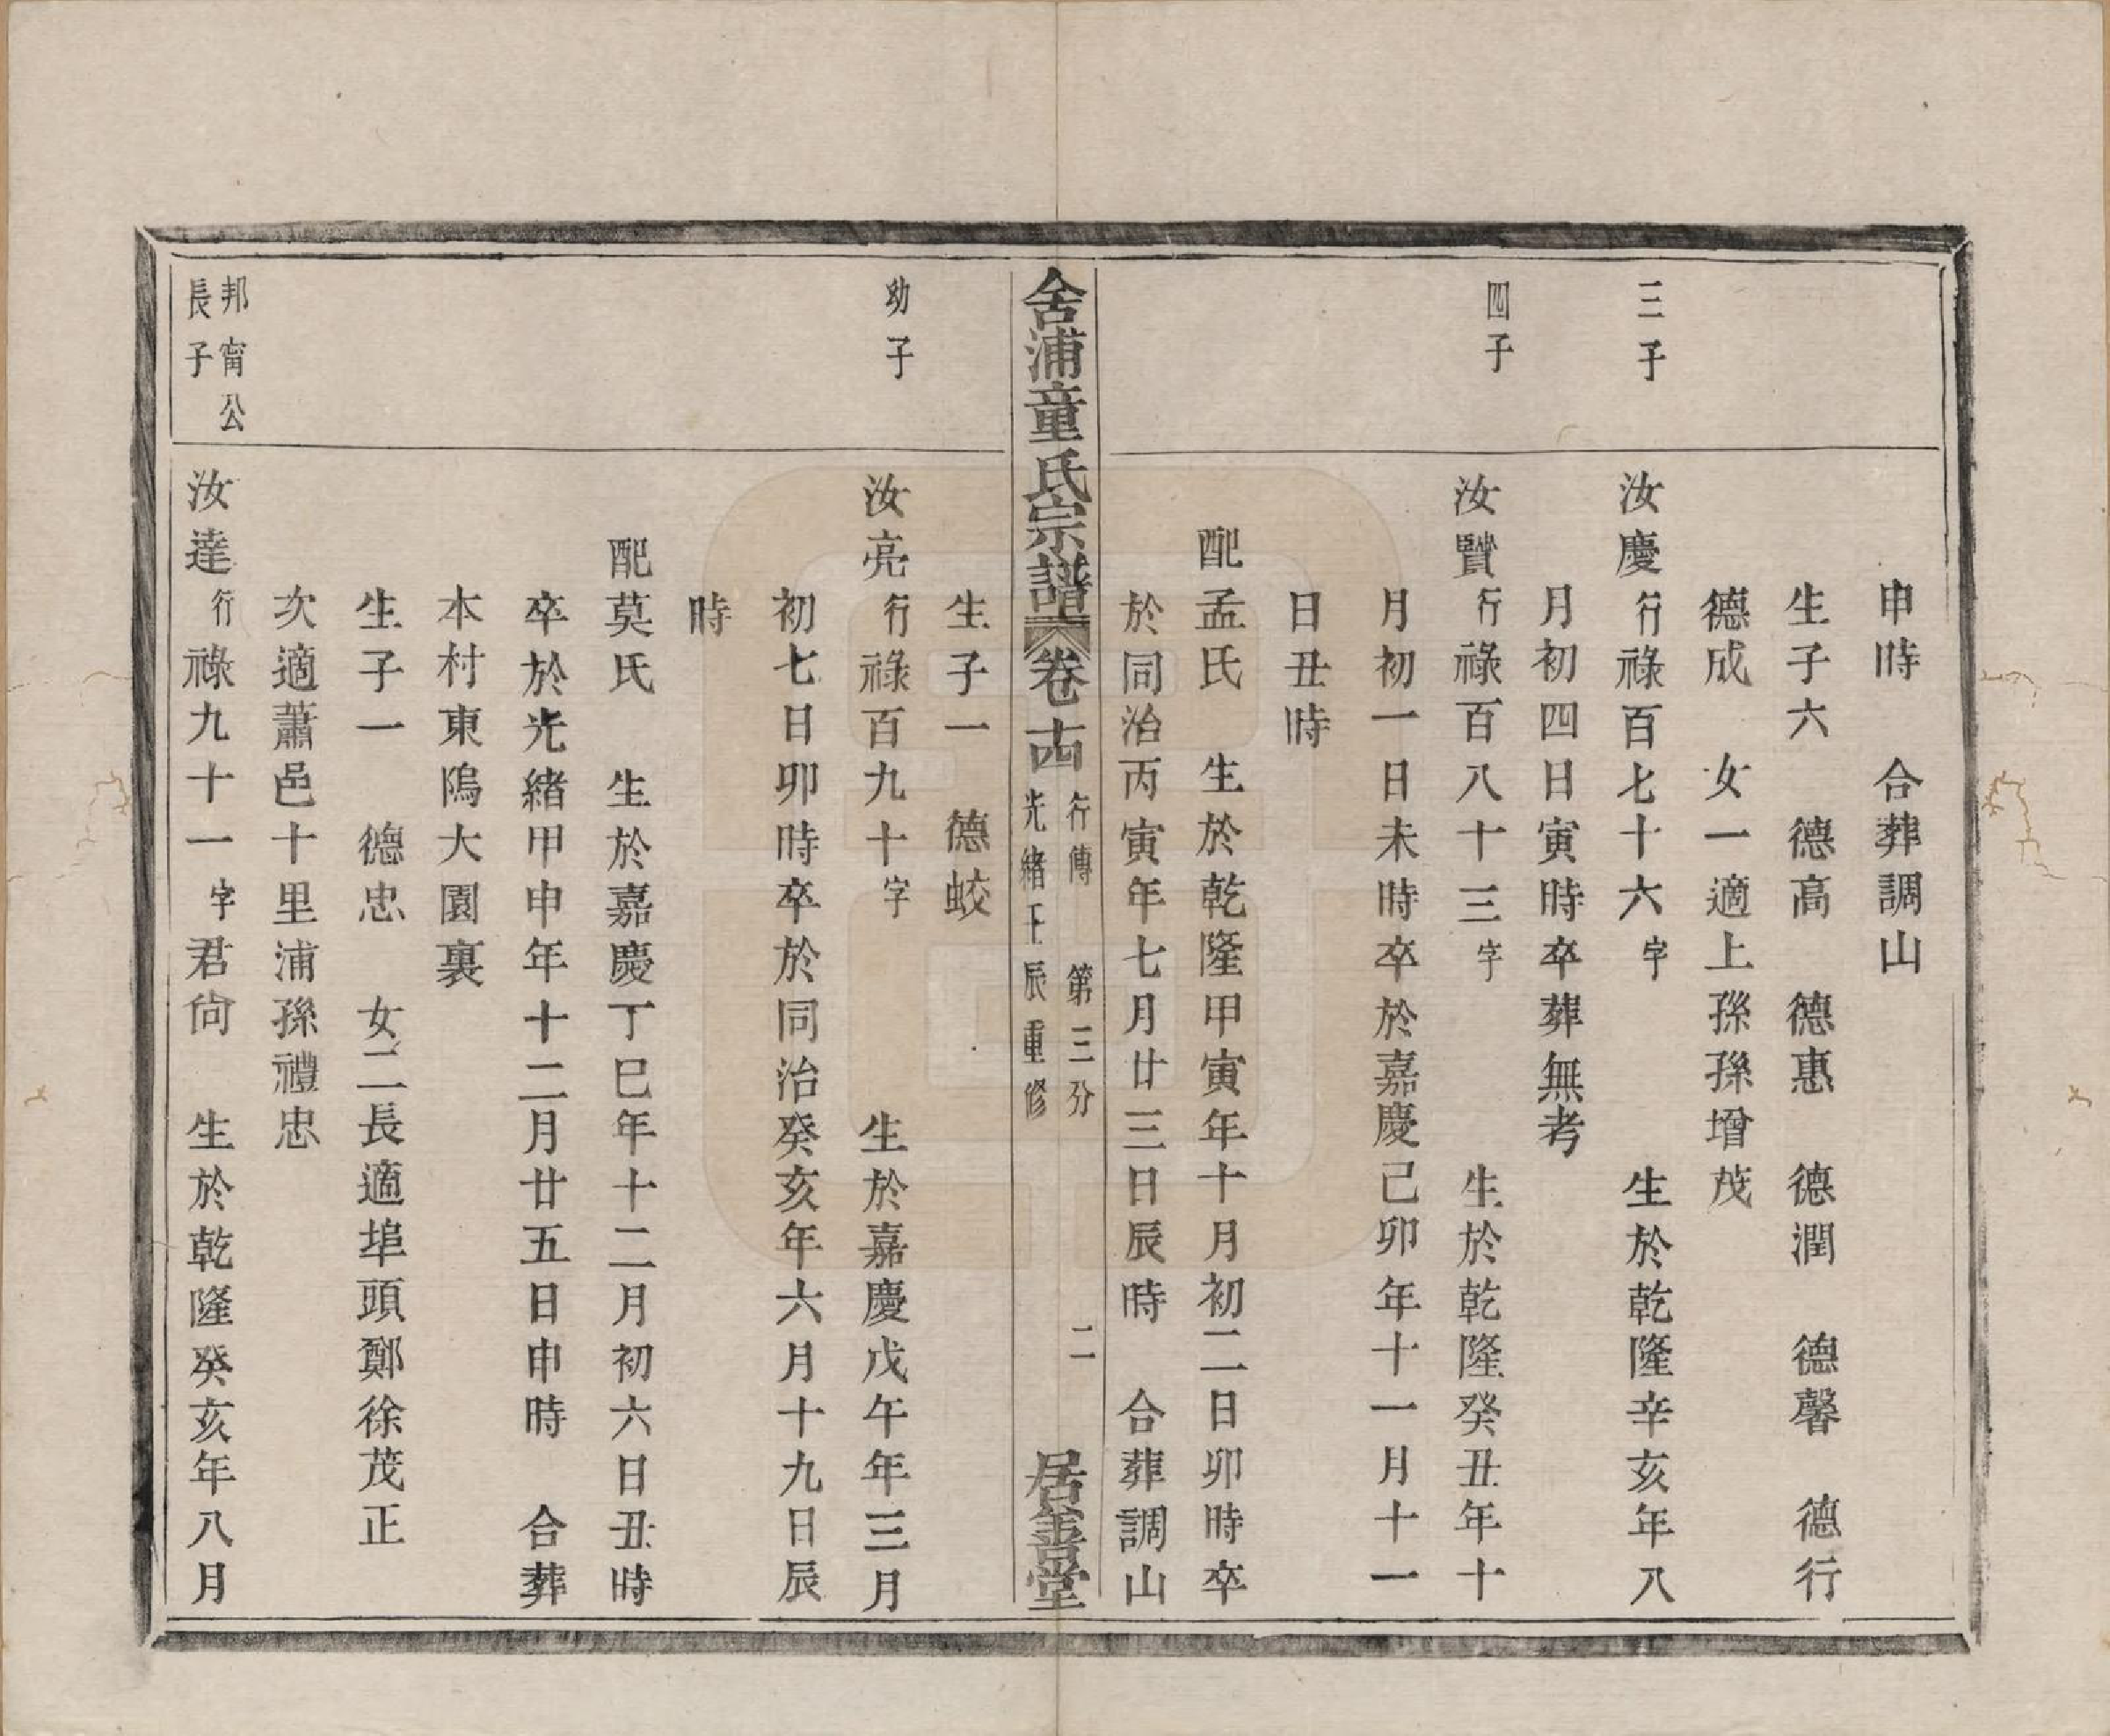 申時　合葬調山
生子六　德高　德惠　德潤　德馨　德行
德成　女一適上孫孫增茂
三子
汝慶行祿百七十六字　生於乾隆辛亥年八
月初四日寅時卒葬無考
四子
汝賢行祿百八十三字　生於乾隆癸丑年十
月初一日未時卒於嘉慶己卯年十一月十一
日丑時
配孟氏　生於乾隆甲寅年十月初二日卯時卒
於同治丙寅年七月廿三日辰時　合葬調山
舍浦童氏宗譜　卷十四　行傳　第三分　二　居善堂
光緒壬辰重修
生子一　德蛟
幼子
汝亮行祿百九十字　生於嘉慶戊午年三月
初七日卯時卒於同治癸亥年六月十九日辰
時
配莫氏　生於嘉慶丁巳年十二月初六日丑時
卒於光緒甲申年十二月廿五日申時　合葬
本村東隖大園裏
生子一　德忠　女二長適埠頭鄭徐茂正
次適蕭邑十里浦孫禮忠
邦甯公
長子
汝達行祿九十一字君尙　生於乾隆癸亥年八月